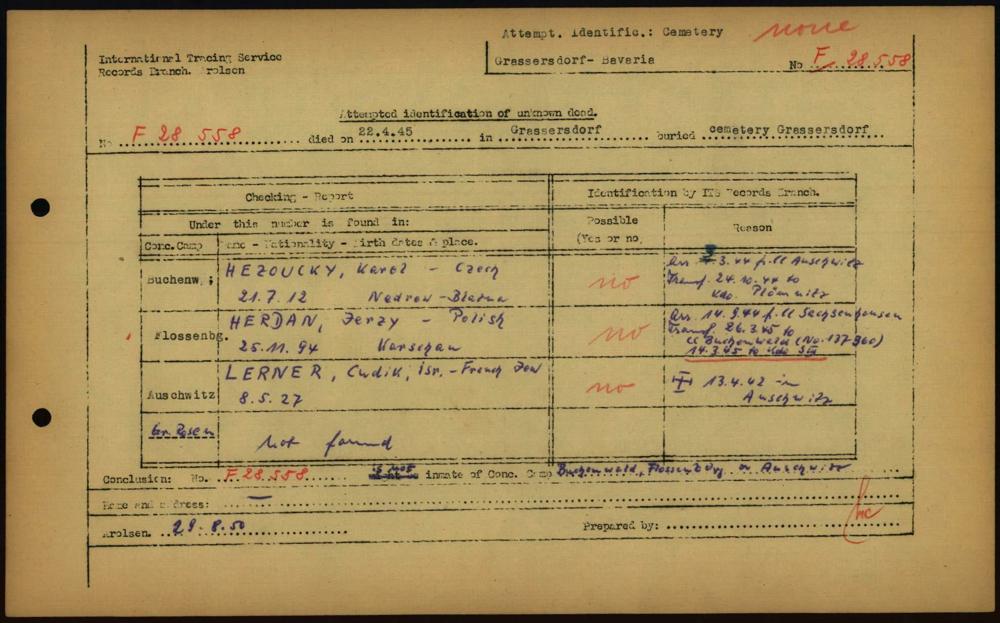 Attempt. Identific.: Cemetery none
International Tracing Service
Grassersdorf- Bavaria
Records Branch. Arolsen
No F 28 558
Attempted identification of unknown dead.
No F 28 558 died on 22.4.45 in Grassersdorf buried cemetery Grassersdorf
Checking - Report
Identification by ITS Records Branch.
Under this number is found in:
Possible
(Yes or no)
Reason
Conc.Camp Name - Nationality - Birth dates & place.
Buchenw.; HEZOUCKY, Karel - Czech
21.7.12
no
Arr. 3.44 f. CC Auschwitz
Transf. 24.10.44 to
Kdo. Plömnitz
Flossenbg. HERDAN, Jerzy - Polish
25.11.94 Warschau
no
Arr. 14.9.44 f. CC Sachsenhausen
Transf. 26.3.45 to
CC Buchenwald (No. 137960)
14.3.45 to Kdo
Auschwitz LERNER, Cudik, Isr.-French Jew
8.5.27
no
13.4.42 in
Auschwitz
Gr. Rosen
not found
Conclusion: No. F 28 558 is not inmate of Conc. Camp Buchenwald, Flossenbürg or Auschwitz
Name and address: —
Arolsen. 29.8.50
Prepared by: